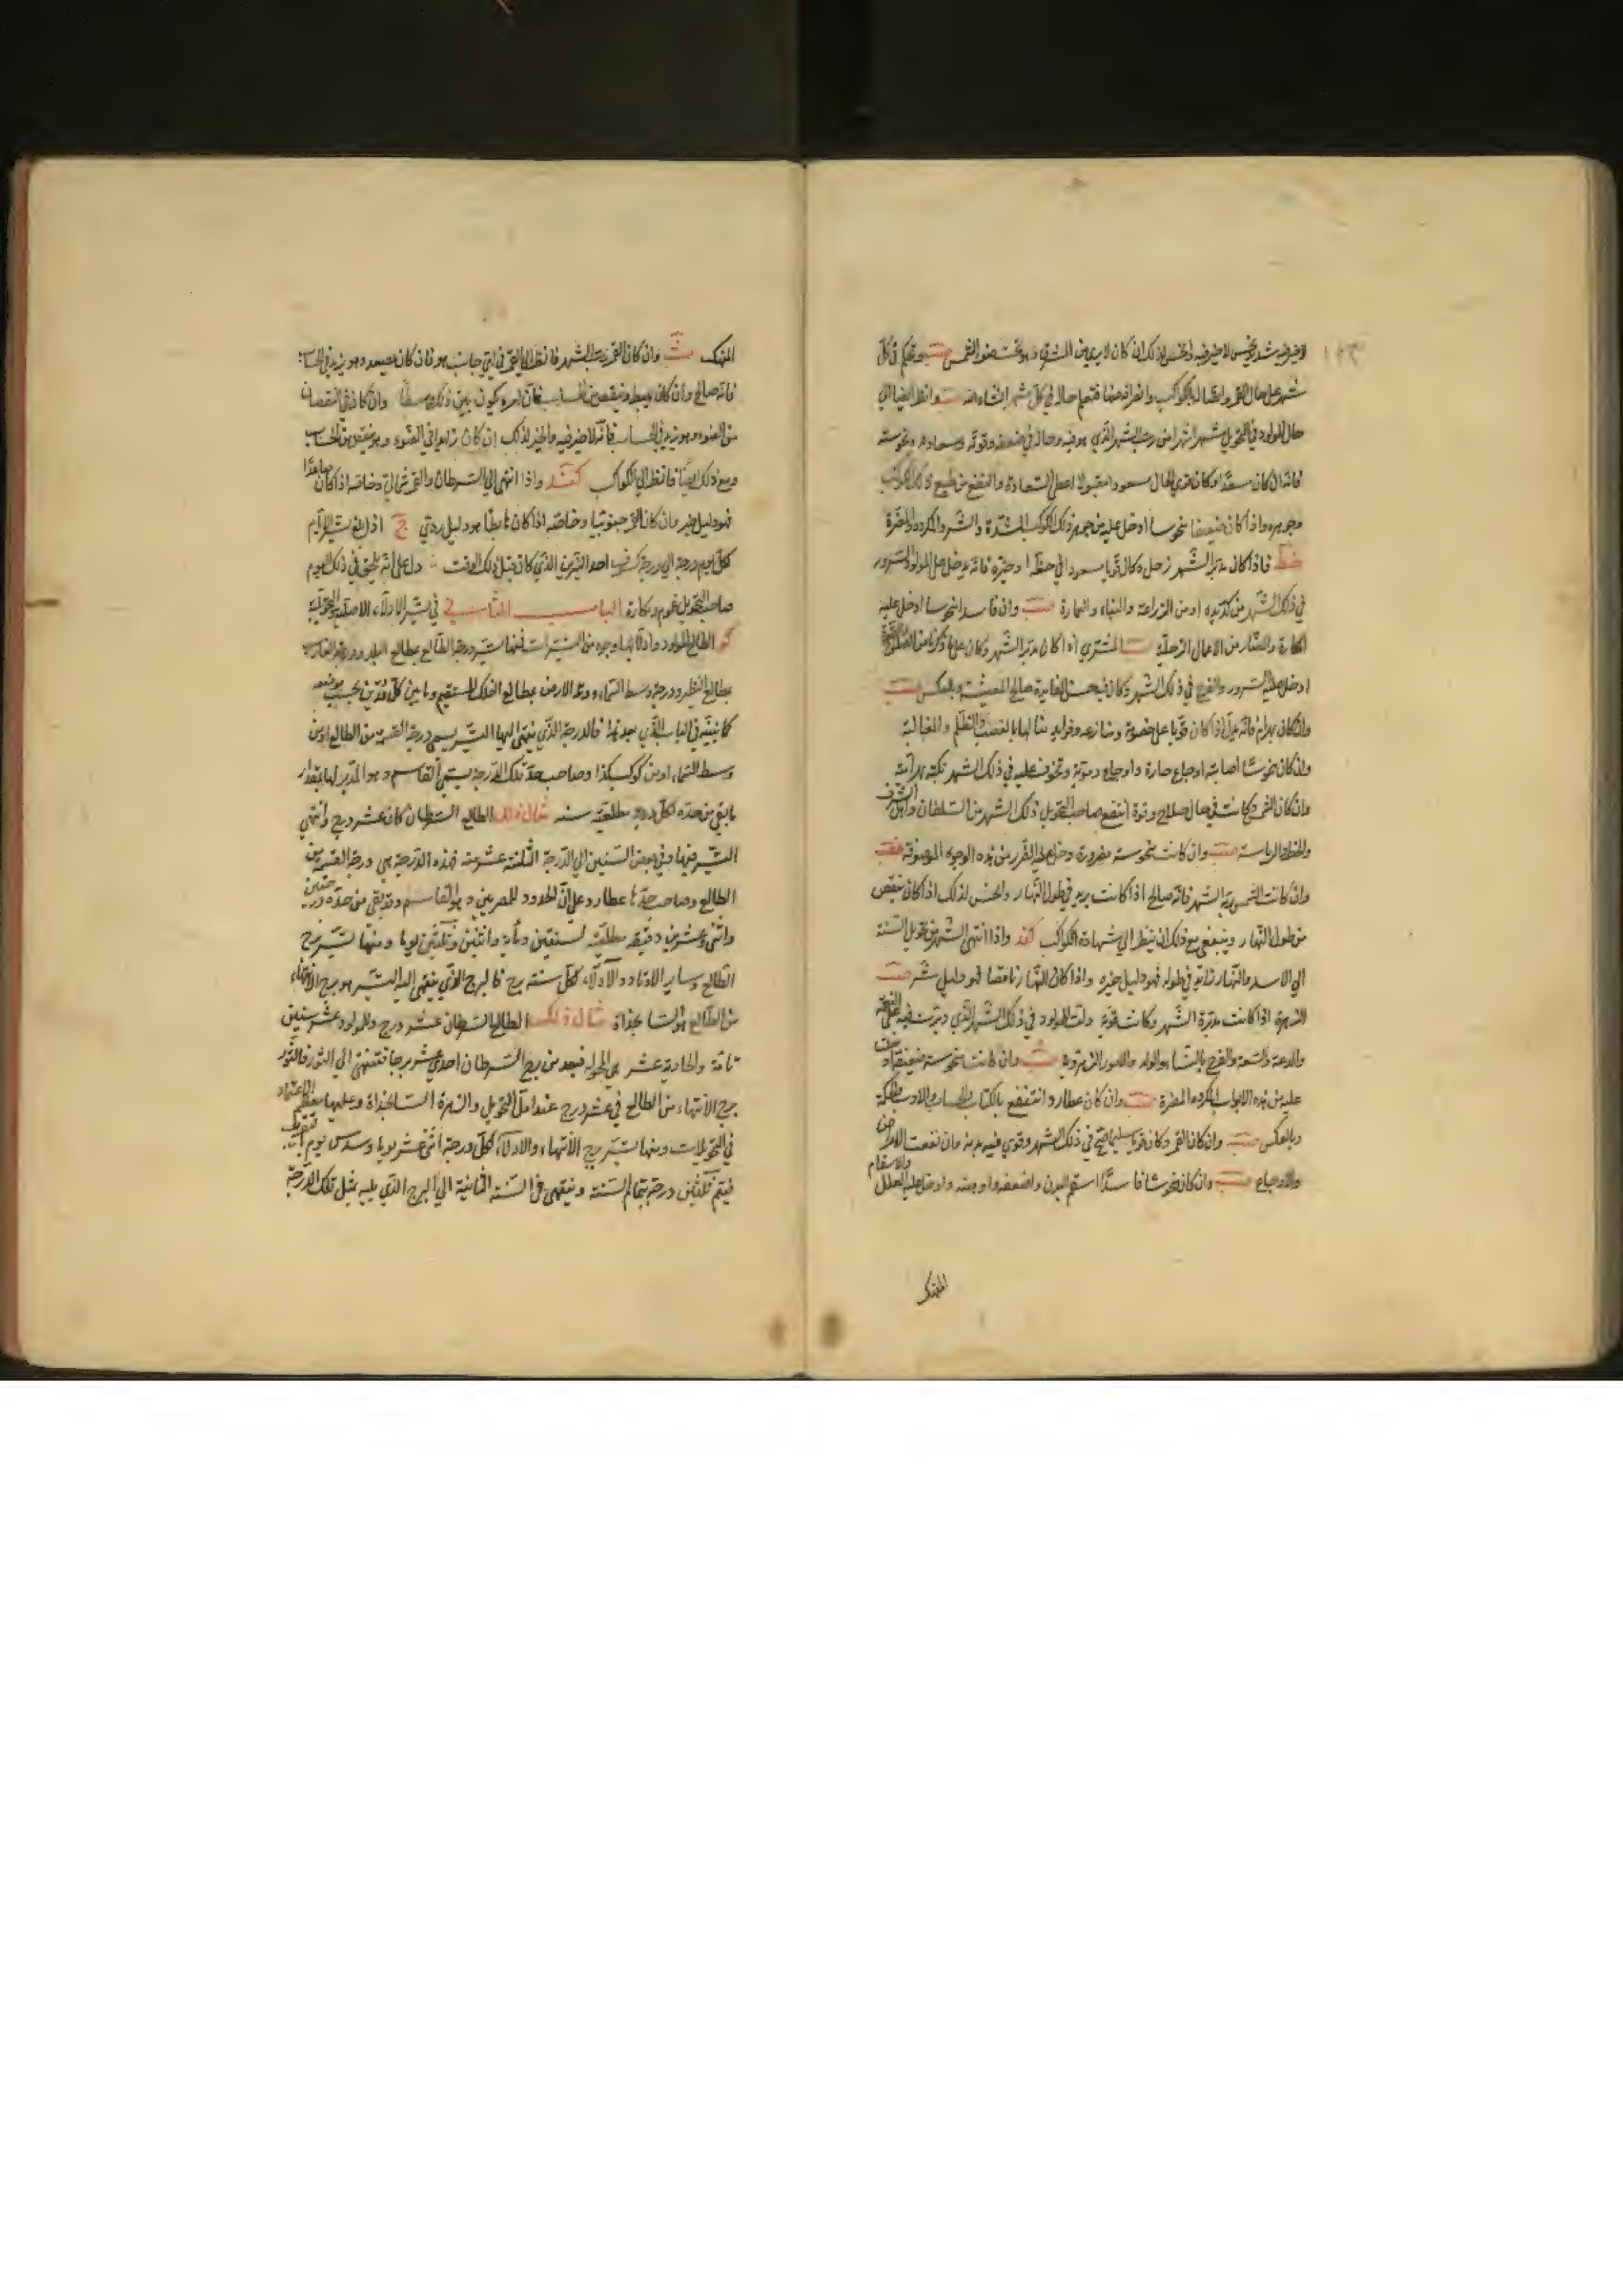 لا خير فيه شد نحس لا خير فيه كان لا يرى من المشرق تحت ضوء الشمس ويحكم في كل
شهر على حال القمر واتصاله بالكواكب وانصرافه عنها فتعلم حاله في كل شهر ان شاء الله وانظر ايضا الى
حال المولود في التحويل شهرا شهرا من رب الشهر الذي هو فيه وحاله في ضعفه وقوته وسعادته ونحوسته
فانه ان كان سعدا وكان قوي الحال مسعودا مقبولا اعطى السعادة والنفع من طبع ذلك الكوكب
وجوهره واذا كان ضعيفا منحوسا ادخل عليه من جوهر ذلك الكوكب الشدة والشر والمكروه والمضرة
فاذا كان مدبر الشهر زحل وكان قويا مسعودا في حظه او حيزه فانه يدخل على المولود السرور
في ذلك الشهر من او من الزراعة والبناء والعمارة وان فاسدا منحوسا ادخل عليه
المكاره والمضار من الاعمال الزحلية المشتري اذا كان مدبر الشهر وكان على ما ذكرنا من
ادخل عليه السرور والفرح في ذلك الشهر وكان فيه حسن الفايدة صالح المعيشة وبالعكس
وان كان بهرام فانه يدل اذا كان قويا على خصومة ومنازعة وفوايد ينالها بالغصب والظلم والمغالبة
وان كان منحوسا اصابته اوجاع حارة واوجاع دموية وتخوف عليه في ذلك الشهر نكبة بهرامية
وان كان الشمس وكانت في حال صلاح وقوة انتفع صاحب التحويل ذلك الشهر من السلطان واهل الشرف
والخطر والرياسة وان كانت منحوسة مضرورة دخل عليه الضرر من هذه الوجوه الموصوفة
وان كانت الشمس ربة الشهر فانه صالح اذا كانت يزيد في طول النهار والنحس لذلك اذا كان ينقص
من طول النهار وينبغي مع ذلك ان ينظر الى شهادة الكواكب واذا انتهى الشهر من تحويل السنة
الى الاسد والنهار زايد في طوله فهو دليل خيره واذا كان النهار ناقصا فهو دليل شر
الزهرة اذا كانت مدبرة الشهر وكانت قوية دلت للمولود في ذلك الشهر الذي دبرت فيه على
والدعة والسعة والفرح بالنساء والولد والامور الزهروية وان كانت منحوسة ضعيفة دخلت
عليه من هذه الابواب المكروه والمضرة وان كان عطارد انتفع بالكتاب والحساب والادب والحكمة
وبالعكس وان كان القمر وكان قويا سليما صح في ذلك الشهر وقوي فيه بدنه وان نفعت الامراض
والاوجاع وان كان منحوسا فاسدا اسقم البدن واضعفه واوهنه وادخل عليه العلل والاسقام
المنهك
المنهك وان كان القمر رب الشهر فانظر الى القمر في اي جانب هو فان كان يصعد وهو يزيد في الحساب
فانه صالح وان كان يهبط وينقص من الحساب فان امره يكون بين ذلك وسطا وان كان في النقصان
من الضوء وهو يزيد في الحساب فانه لا ضر فيه والخير لذلك ان كان زايدا في الضوء وهو ينقص من الحساب
ومع ذلك ايضا فانظر الى الكواكب واذا انتهى الى السرطان والقمر شمالي وخاصة اذا كان صاعدا
فهو دليل خير وان كان القمر جنوبيا وخاصة اذا كان هابطا هو دليل ردي اذا بلغ تسيير الايام
لكل يوم درجة الى درجة كسوف احد النيرين الذي كان قبل ذلك الوقت دل على انه يلحق في ذلك اليوم
صاحب التحويل غموم ومكاره الباب الثاني في تسيير الادلاء الاصلية والتحويلية
الطالع المولود وادلائها وجوه من التسييرات فمنها تسيير درجة الطالع بمطالع البلد ودرجة الغارب
بمطالع النظير ودرجة وسط السماء ووتد الارض بمطالع الفلك المستقيم وما بين كل وتدين بحسب موضعه
كما نبينه في الباب الذي بعد هذا فالدرجة التي ينتهي اليها التسيير يسمى درجة القسمة من الطالع او من
وسط السماء او من كوكب كذا وصاحب حد تلك الدرجة يسمى القاسم وهو المدبر لها بمقدار
ما بقي من حده لكل درجة مطلعية سنة مثال ذلك الطالع السرطان كان عشر درج وانتهى
التسيير منها في بعض السنين الى الدرجة الثلثة عشر منه فهذه الدرجة هي درجة القسمة من
الطالع وصاحب حدها عطارد على ان الحدود للمصريين وهو القاسم وقد بقي من حده درجتين
واثني وعشرين دقيقة مطلعية لسنتين ومأية واثنين وثلثين يوما ومنها تسيير برج
الطالع وساير الاوتاد والادلاء لكل سنة برج فالبرج الذي ينتهي اليه التسيير هو برج الانتهاء
من الطالع مثال ذلك الطالع السرطان عشر درج والمولود عشر سنين
تامة والحادية عشر هي المحولة فبعد من برج السرطان احدي عشر برجا فتنتهي الى الثور فالثور
برج الانتهاء من الطالع في عشر درج عند اهل التحويل والزهرة وعليها معظم الاعتماد
في التحويلات ومنها تسيير برج الانتهاء والادلاء لكل درجة اثني عشر يوما وسدس يوم
فيتم ثلثين درجة بتمام السنة وينتهي في السنة الثانية الى البرج الذي يليه بمثل تلك الدرجة